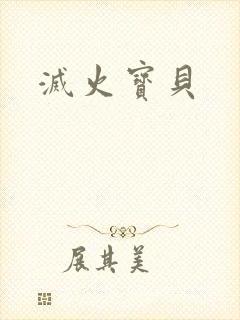 滅火寶貝
展其美